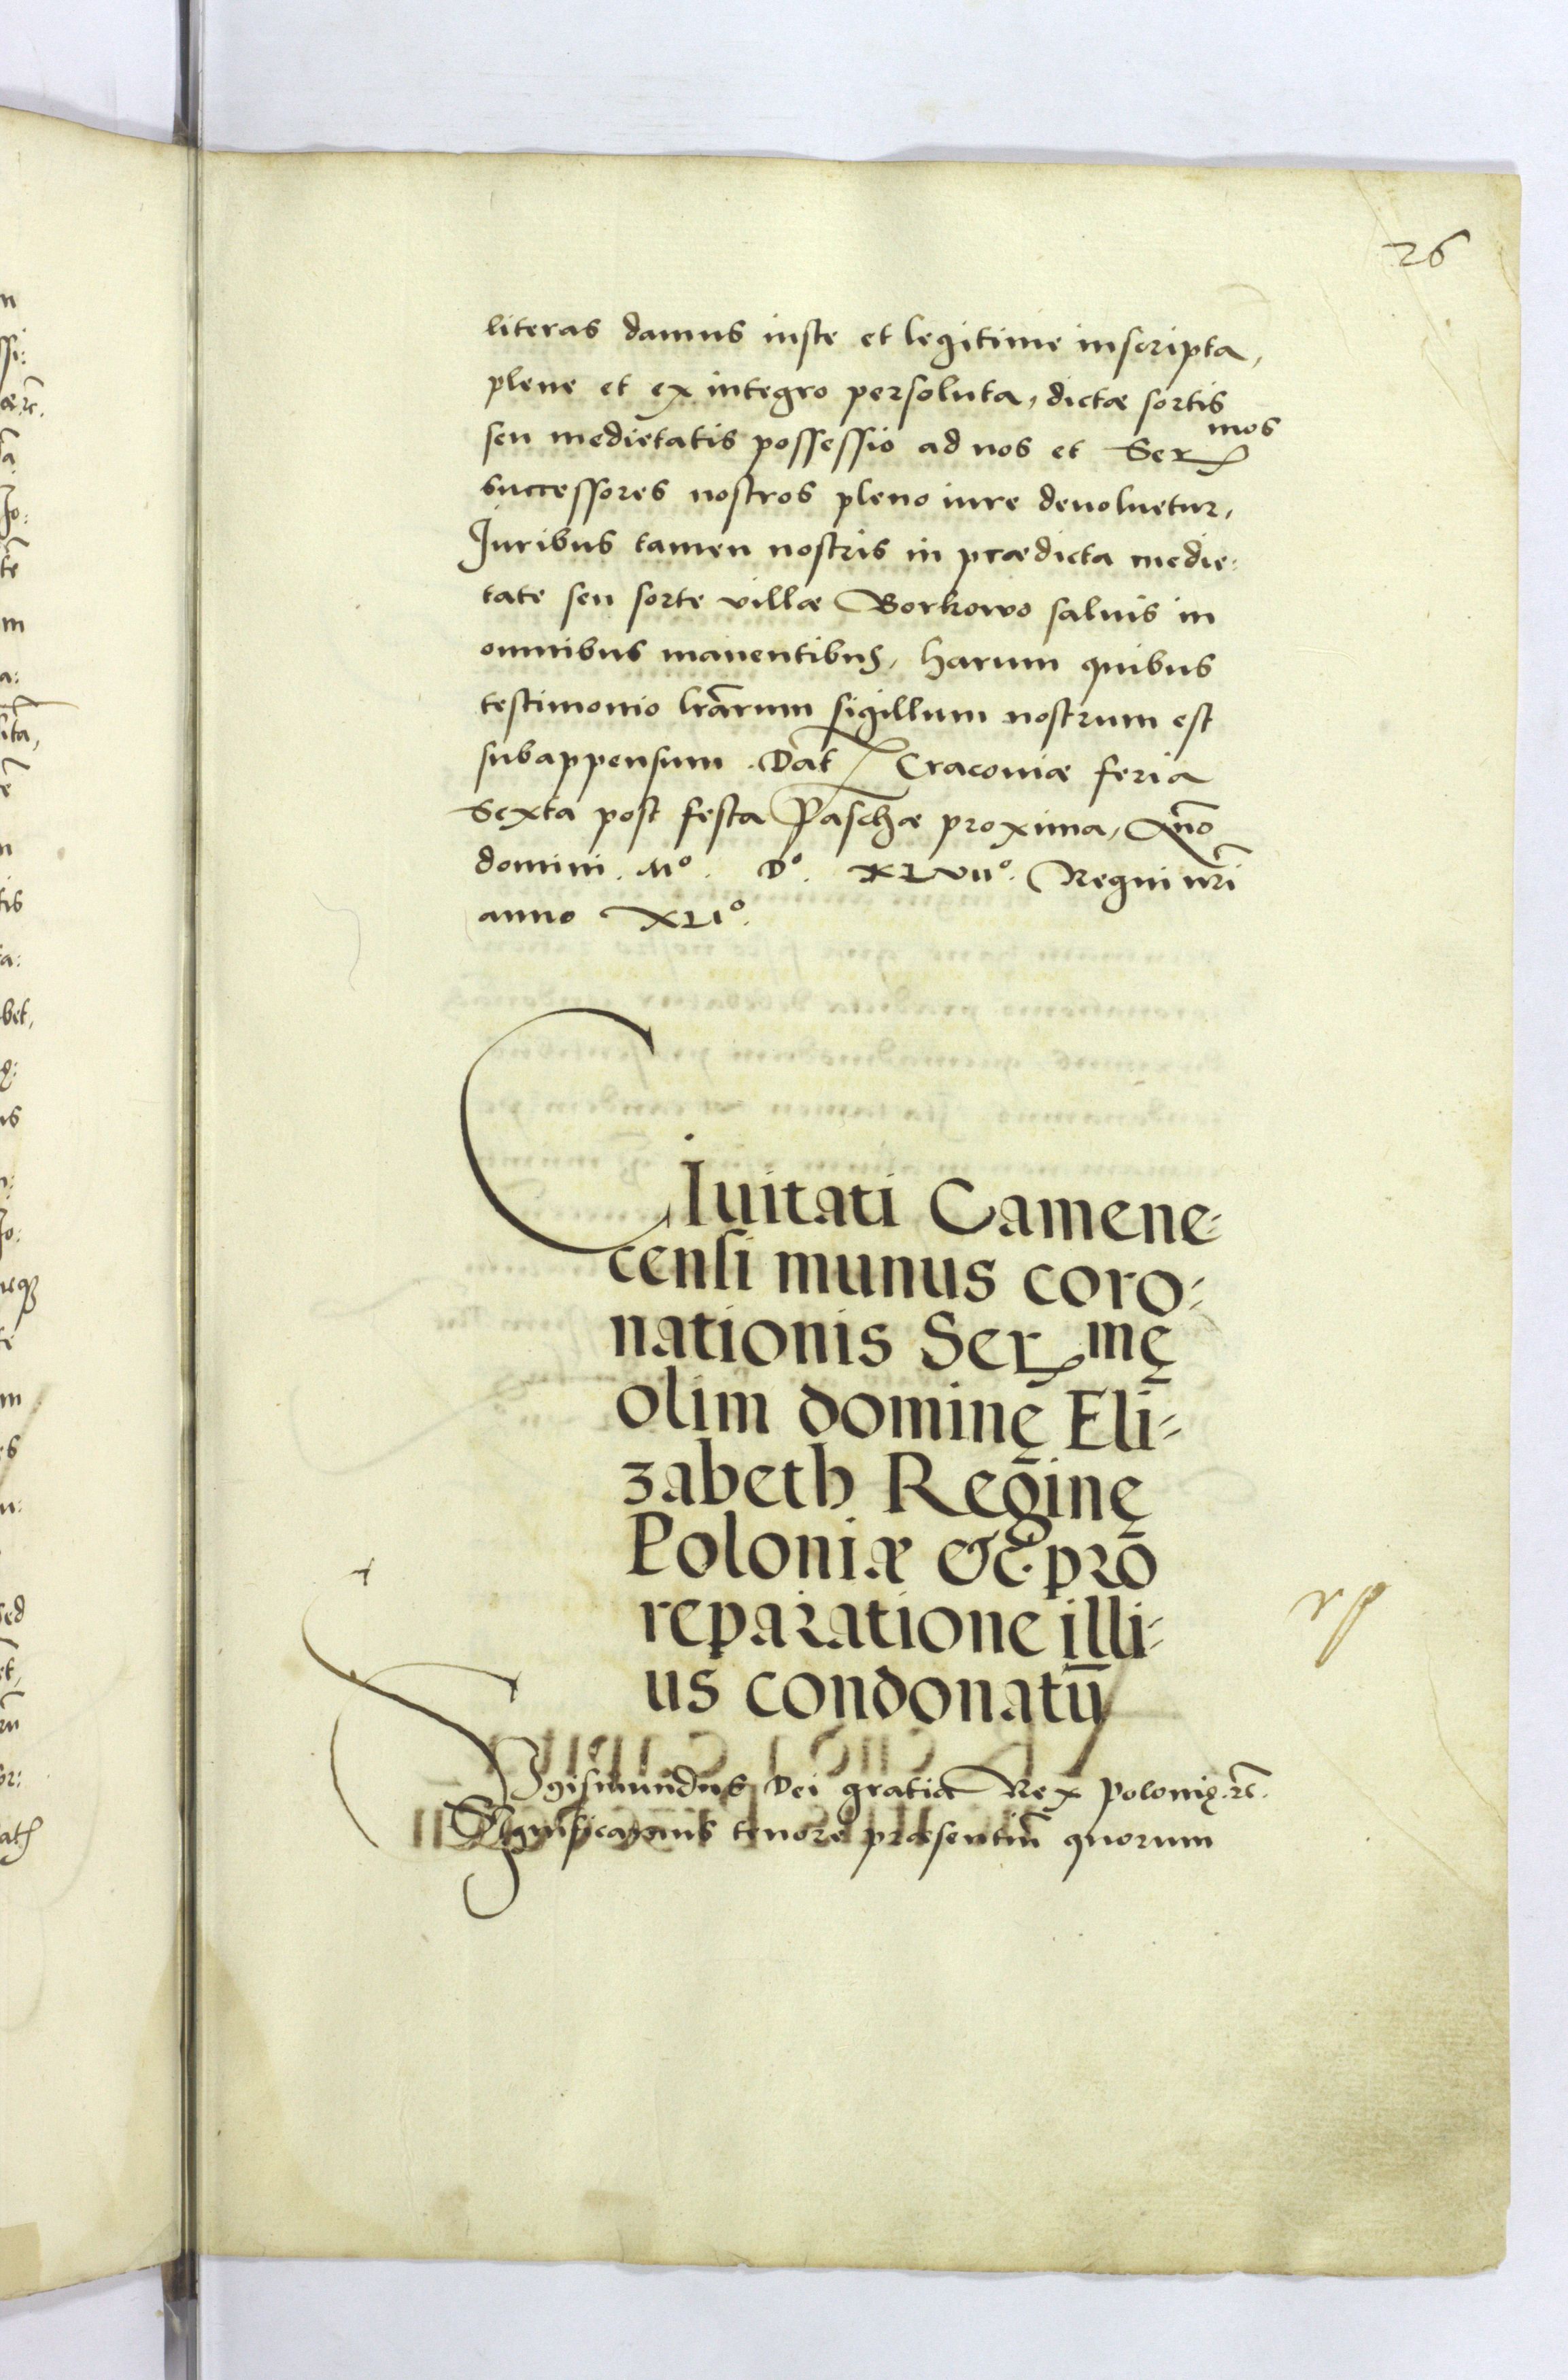 26
literas damus iuste et legitime inscripta,
plene et ex integro persoluta, dictæ sortis
seu medietatis possessio ad nos et Ser mos
successores nostros pleno iure devoluetur,
Juribus tamen nostris in prædicta medie:
tate seu sorte villæ Borkowo saluis in
omnibus manentibus, harum quibus
testimonio lr̃arum sigillum nostrum est
subappensum. Dat Cracoviæ feria
Sexta post festa Paschæ proxima, Anno
domini. Mº. Dº. XLVIIº. Regni nr̃i
anno XLIº.
CIuitati Camene:
censi munus coro:
nationis Ser mę
olim dominę Eli:
zabeth Reginę
Poloniæ &c. pro
reparatione illi:
us condonatū
rp
Sigismundus Dei gratia Rex Polonię. rc̃.
Significamus tenore præsentiū quorum